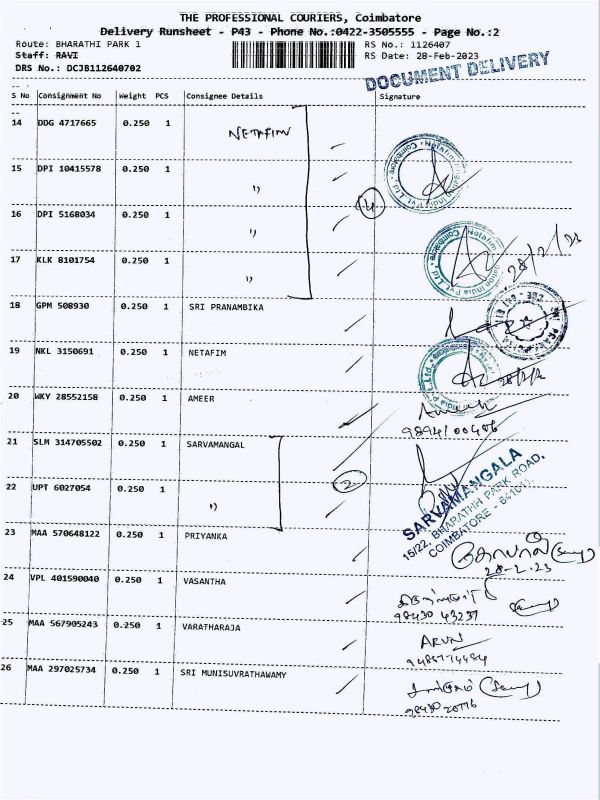 THE PROFESSIONAL COURIERS, Coimbatore
Delivery Runsheet - P43 - Phone No.:0422-3505555 - Page No.:2
Route: BHARATHI PARK 1 RS No.: 1126407
Staff: RAVI RS Date: 28-Feb-2023
DRS No.: DCJB112640702
DOCUMENT DELIVERY
S No Consignment No Weight PCS Consignee Details Signature
14 DDG 4717665 0.250 1 NETAFIM
15 DPI 10415578 0.250 1 "
4
16 DPI 5168034 0.250 1 "
28/2/23
17 KLK 8101754 0.250 1 "
18 GPM 508930 0.250 1 SRI PRANAMBIKA
19 NKL 3150691 0.250 1 NETAFIM
20 WKY 28552158 0.250 1 AMEER
9894100406
21 SLM 314705502 0.250 1 SARVAMANGAL
2
SARVAMANGALA
15/22, BHARATHI PARK ROAD,
COIMBATORE - 641011.
22 UPT 6027054 0.250 1 "
23 MAA 570648122 0.250 1 PRIYANKA
கோபால்
28-2-23
24 VPL 401590040 0.250 1 VASANTHA
98430 43237
25 MAA 567905243 0.250 1 VARATHARAJA ARUN
26 MAA 297025734 0.250 1 SRI MUNISUVRATHAWAMY
98430 20776